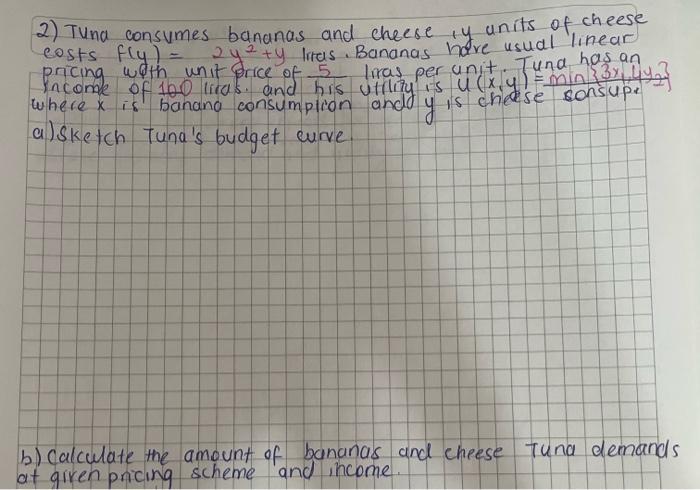 2) Tuna consumes bananas and cheese, y units of cheese
costs f(y) = 2y²+y liras. Bananas have usual linear
pricing with unit price of 5 liras per unit. Tuna has an
income of 100 liras. and his utility is u(x,y) = min{3x,4y}
where x is banana consumption and y is cheese
a) Sketch Tuna's budget curve.
b) Calculate the amount of bananas and cheese Tuna demands
at given pricing scheme and income.